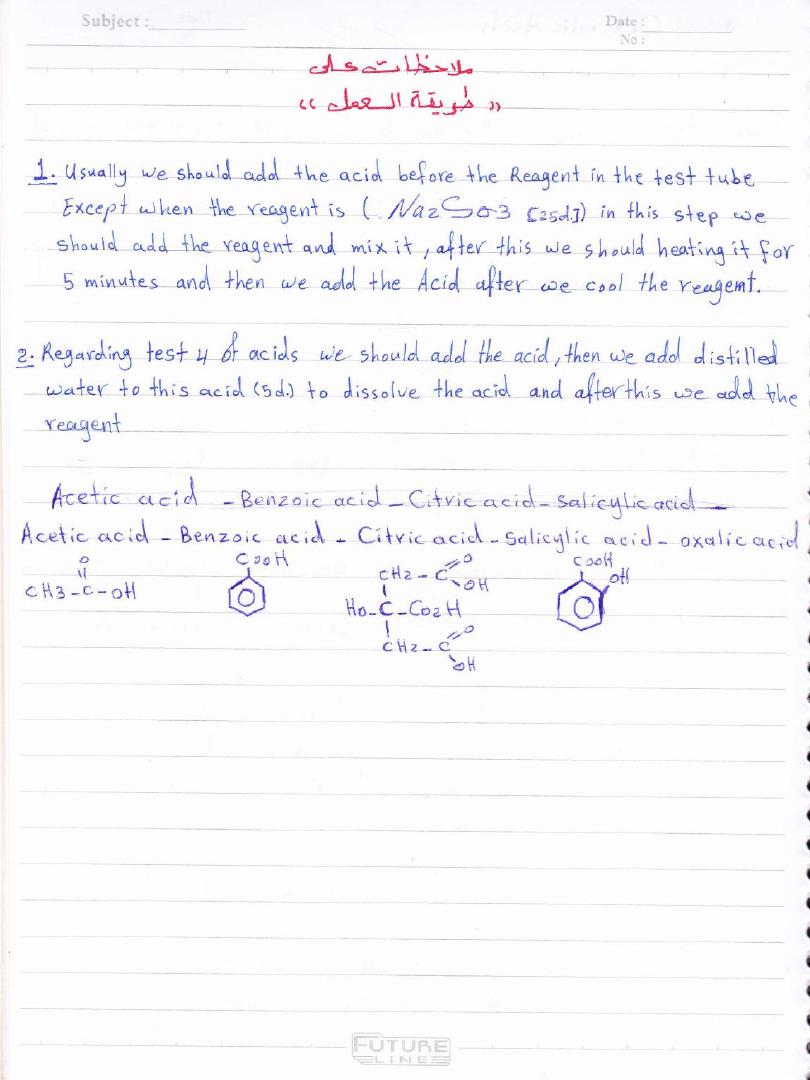 Subject :
Date :
No :
ملاحظات على
" طريقة العمل "
1. Usually we should add the acid before the Reagent in the test tube
Except when the reagent is ( Na2So3 [25d.]) in this step we
should add the reagent and mix it , after this we should heating it for
5 minutes and then we add the Acid after we cool the reagent.
2. Regarding test 4 of acids we should add the acid, then we add distilled
water to this acid (5d.) to dissolve the acid and after this we add the
reagent
Acetic acid - Benzoic acid - Citric acid - Salicylic acid -
Acetic acid - Benzoic acid - Citric acid - Salicylic acid - oxalic acid
O
CH3-C-OH
COOH
CH2-C
O
OH
HO-C-CO2H
CH2-C
O
OH
COOH
OH
FUTURE
LINE